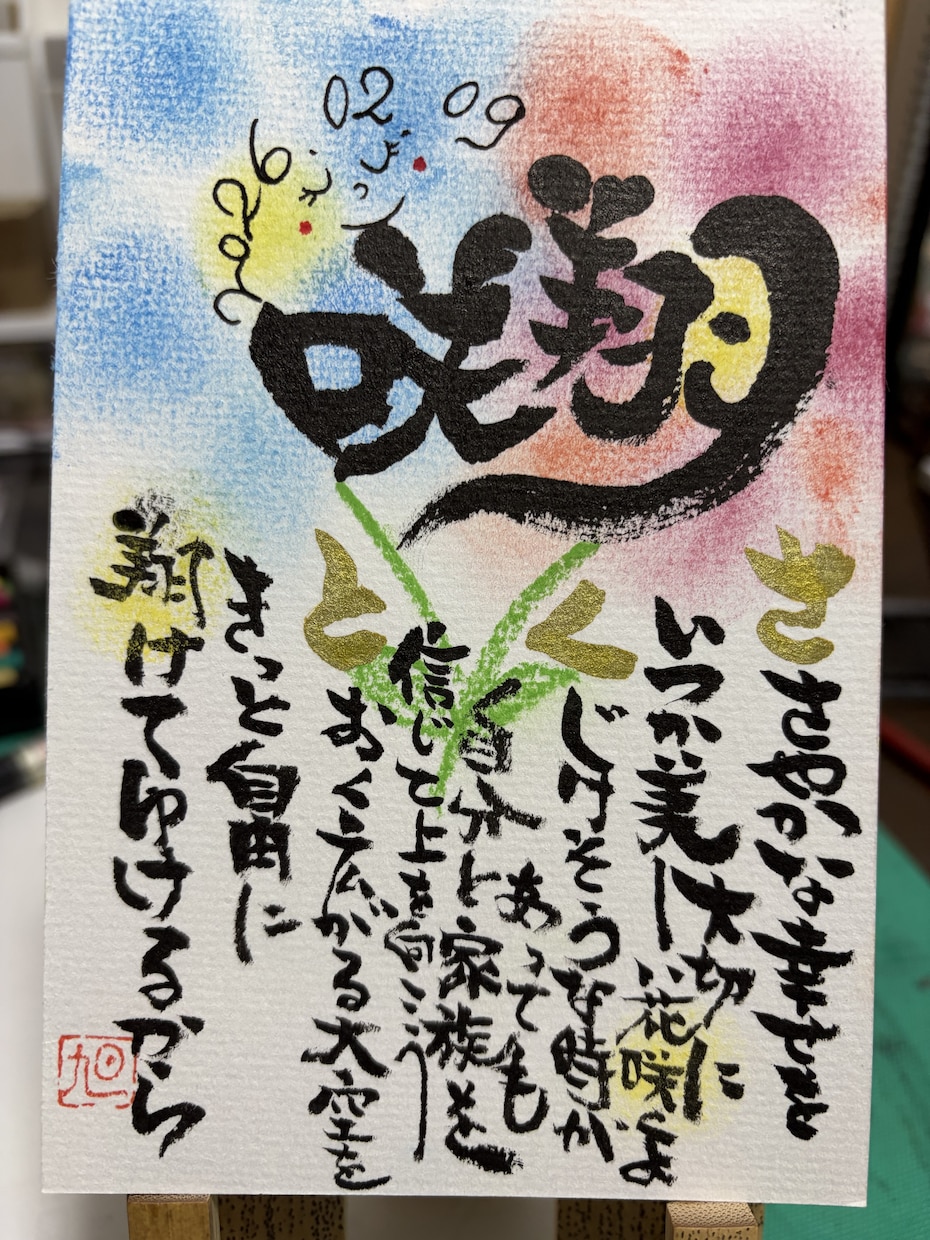 2026 02 09
咲翔
ささやかな幸せを
大切に
いつか美しい花咲くよ
くじけそうな時が
あっても
自分と家族を
信じて上を向こう
とおく広がる大空を
きっと自由に
翔けてゆけるから
旭